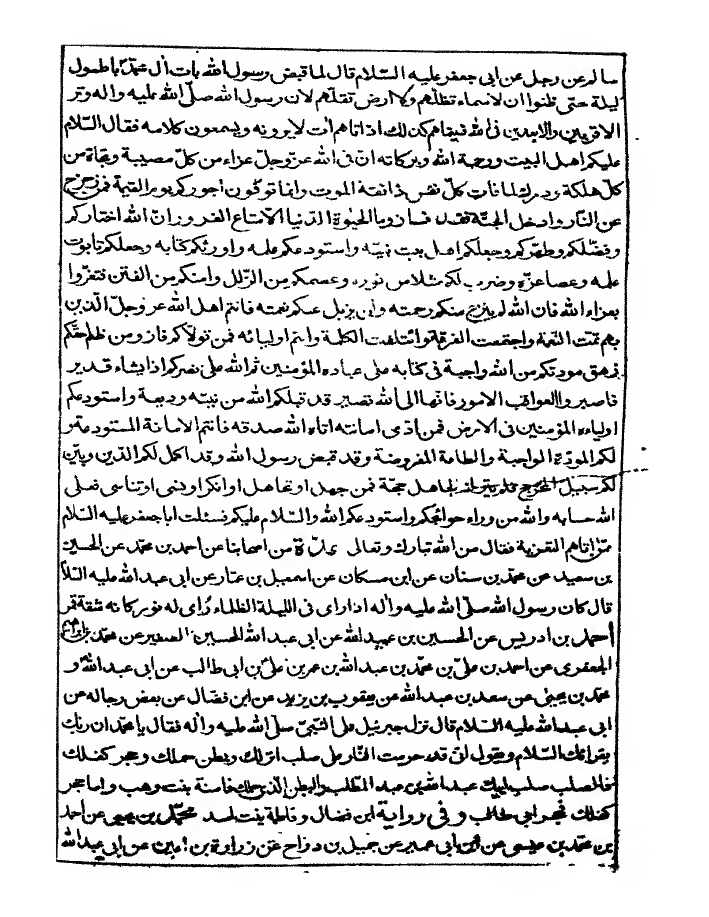 سالم عن رجل عن ابى جعفر عليه السّلام قال لما قبض رسول الله بات آل محمّد باطول
ليلة حتى ظنوا ان لاسماء تظلّهم ولا ارض تقلّهم لان رسول الله صلّى الله عليه واله وتر
الاقربين والابعدين فى الله فبيناهم كذلك اذ اتاهم ات لا يرونه ويسمعون كلامه فقال السّلام
عليكم اهل البيت ورحمة الله وبركاته انّ فى الله عزّ وجلّ عزاء من كلّ مصيبة ونجاة من
كلّ هلكة ودركا لما فات كلّ نفس ذائقة الموت وانما توفّون اجوركم يوم القيمة فمن زحزح
عن النّار وادخل الجنّة فقد فاز وما الحيوة الدّنيا الّا متاع الغرور انّ الله اختاركم
وفضّلكم وطهّركم وجعلكم اهل بيت نبيّه واستودعكم علمه واورثكم كتابه وجعلكم تابوت
علمه وعصا عزّه وضرب لكم مثلا من نوره وعصمكم من الزّلل وامنكم من الفتن فتعزّوا
بعزاء الله فان الله لم ينزع منكم رحمته ولن يزيل عنكم نعمته فانتم اهل الله عز وجلّ الّذين
بهم تمّت النّعمة واجتمعت الفرقة وائتلفت الكلمة وانتم اوليائه فمن تولّاكم فاز ومن ظلم حقّكم
زهق مودتكم من الله واجبة فى كتابه على عباده المؤمنين ثم الله على نصركم اذا يشاء قدير
فاصبروا لعواقب الامور فانّها الى الله تصير قد قبلكم الله من نبيّه وديعة واستودعكم
اولياءه المؤمنين فى الارض فمن ادّى امانته اتاه الله صدقه فانتم الامانة المستودعة و
لكم المودّة الواجبة والطاعة المفروضة وقد قبض رسول الله وقد اكمل لكم الدّين وبيّن
لكم سبيل المخرج فلم يترك لجاهل حجّة فمن جهل او تجاهل او انكر او نسى او تناسى فعلى
الله حسابه والله من وراء حوائجكم واستودعكم الله والسّلام عليكم فسئلت ابا جعفر عليه السّلام
ممّن اتاهم التعزية فقال من الله تبارك وتعالى عدّة من اصحابنا عن احمد بن محمّد عن الحسين
بن سعيد عن محمّد بن سنان عن ابن مسكان عن اسمعيل بن عمّار عن ابى عبد الله عليه السّلام
قال كان رسول الله صلّى الله عليه واله اذا راى فى الليلة الظلماء رُاى له نور كانه شقة قمر
أحمد بن ادريس عن الحسين بن عبيد الله عن ابى عبد الله الحسين الصغير عن محمّد بن ابرهيم
الجعفرى عن احمد بن علىّ بن محمّد بن عبد الله بن عمر بن علىّ بن ابى طالب عن ابى عبد الله و
محمّد بن يحيى عن سعد بن عبد الله عن يعقوب بن يزيد عن ابن فضال عن بعض رجاله عن
ابى عبد الله عليه السّلام قال نزل جبرئيل على النّبىّ صلّى الله عليه واله فقال يا محمّد ان ربّك
يقرائك السّلام ويقول انّى قد حرمت النّار على صلب انزلك وبطن حملك وحجر كفلك
فالصلب صلب ابيك عبد الله بن عبد المطّلب والبطن الّذى حملك فامنة بنت وهب واما حجر
كفلك فحجر ابى طالب وفى رواية ابن فضال وفاطمة بنت اسد محمّد بن يحيى عن احمد
بن محمّد بن عيسى عن ابن ابى عمير عن جميل بن دراج عن زرارة بن اعين عن ابى عبد الله